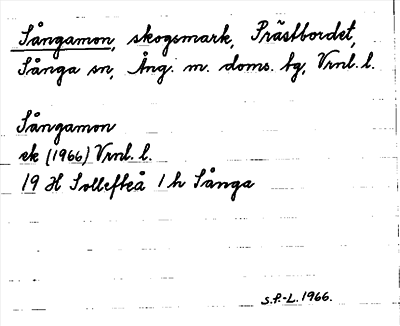 Sångamon, skogsmark, Prästbordet,
Sånga sn, Ång. m. doms. bg, Vrnl. l.
Sångamon
ek (1966) Vrnl. l.
19 H Sollefteå 1 h Sånga
S.P.-L. 1966.